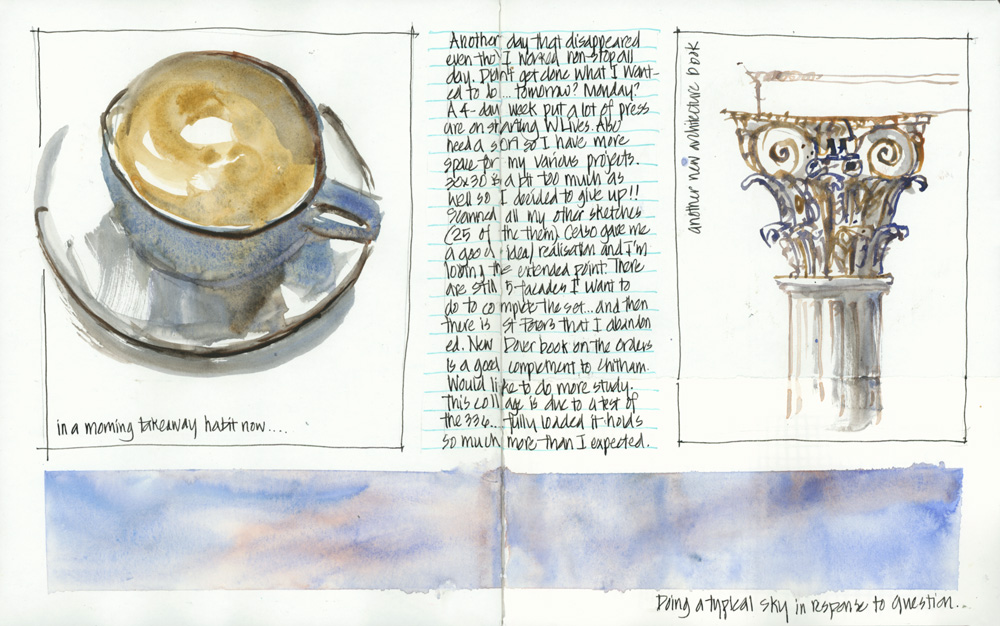 Another day that disappeared
even tho I worked non-stop all
day. Didn't get done what I want-
ed to do... tomorrow? Monday?
A 4-day week put a lot of press
are on starting WLives. Also
need a sort so I have more
space for my various projects.
30x30 is a bit too much as
well so I decided to give up!!
Scanned all my other sketches
(25 of the them) Celso gave me
a good (idea) realisation and I'm
losing the extended point. There
are still 5-facades I want to
do to complete the set... and then
there is St Peters that I abandon
ed. New Dover book on the orders
is a good complement to Chitham.
Would like to do more study.
This collage is due to a test of
the 336... fully loaded it holds
so much more than I expected.
in a morning takeaway habit now....
another new architecture book
Doing a typical sky in response to question...